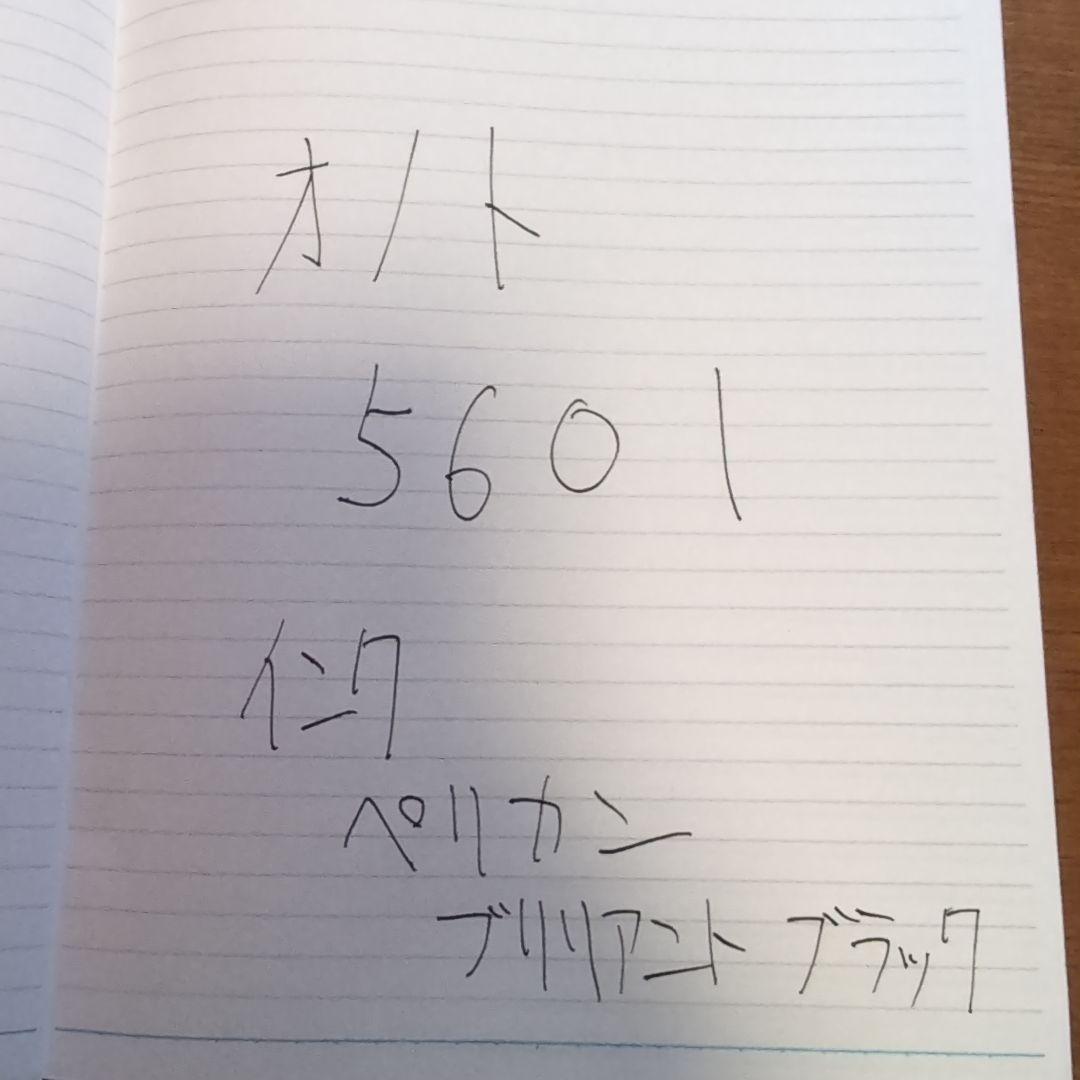 オノト
5601
インク
ペリカン
ブリリアント ブラック